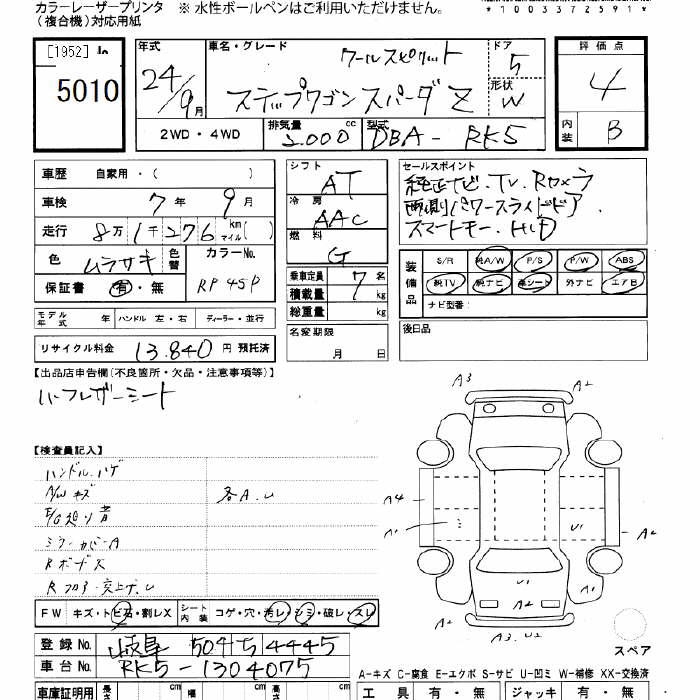 カラーレーザープリンタ ※ 水性ボールペンはご利用いただけません。
(複合機)対応用紙
*1003372591*
[1952]
5010
年式 24/9月
車名・グレード ワールスピリット
ステップワゴン スパーダ Z
ドア 5
形状 W
評価点 4
内装 B
2WD・4WD
排気量 2.000 cc
型式 DBA-RK5
車歴 自家用・( )
車検 7年 9月
走行 8万1千276 km マイル( )
色 ムラサキ 色替
カラーNo. RP45P
保証書 有・無
シフト AT
冷房 AAC
燃料 G
乗車定員 7名
積載量 kg
総重量 kg
セールスポイント
純正ナビ.TV.Rカメラ
両側パワースライドドア
スマートキー.HID
装備品
S/R 純A/W P/S P/W ABS
純TV 純ナビ 革シート 外ナビ エアB
ナビ型番:
モデル年式 年 ハンドル 左・右 ディーラー・並行
名変期限 月 日
後日品
リサイクル料金 13.840円 預託済
【出品店申告欄(不良箇所・欠品・注意事項等)】
ハーフレザーシート
【検査員記入】
ハンドル.ハゲ
A/W キズ
各A.U
ミラーカバーA
A3 A2
A4
A1
U1
A2
A2
U1
A2
A3.U2
FW キズ・トビ石・割レX
シート内装 コゲ・穴・汚レ・シミ・破レ・スレ
スペア
登録No. 岐阜 504 ち 4445
車台No. RK5-1304075
A-キズ C-腐食 E-エクボ S-サビ U-凹ミ W-補修 XX-交換済
車庫証明用 長さ cm 幅 cm 高さ cm
工具 有・無 ジャッキ 有・無